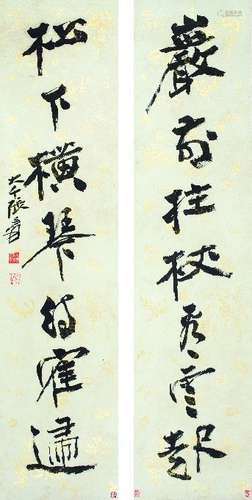 巖前拄杖看雲起
松下橫琴待崔歸
大千張爰